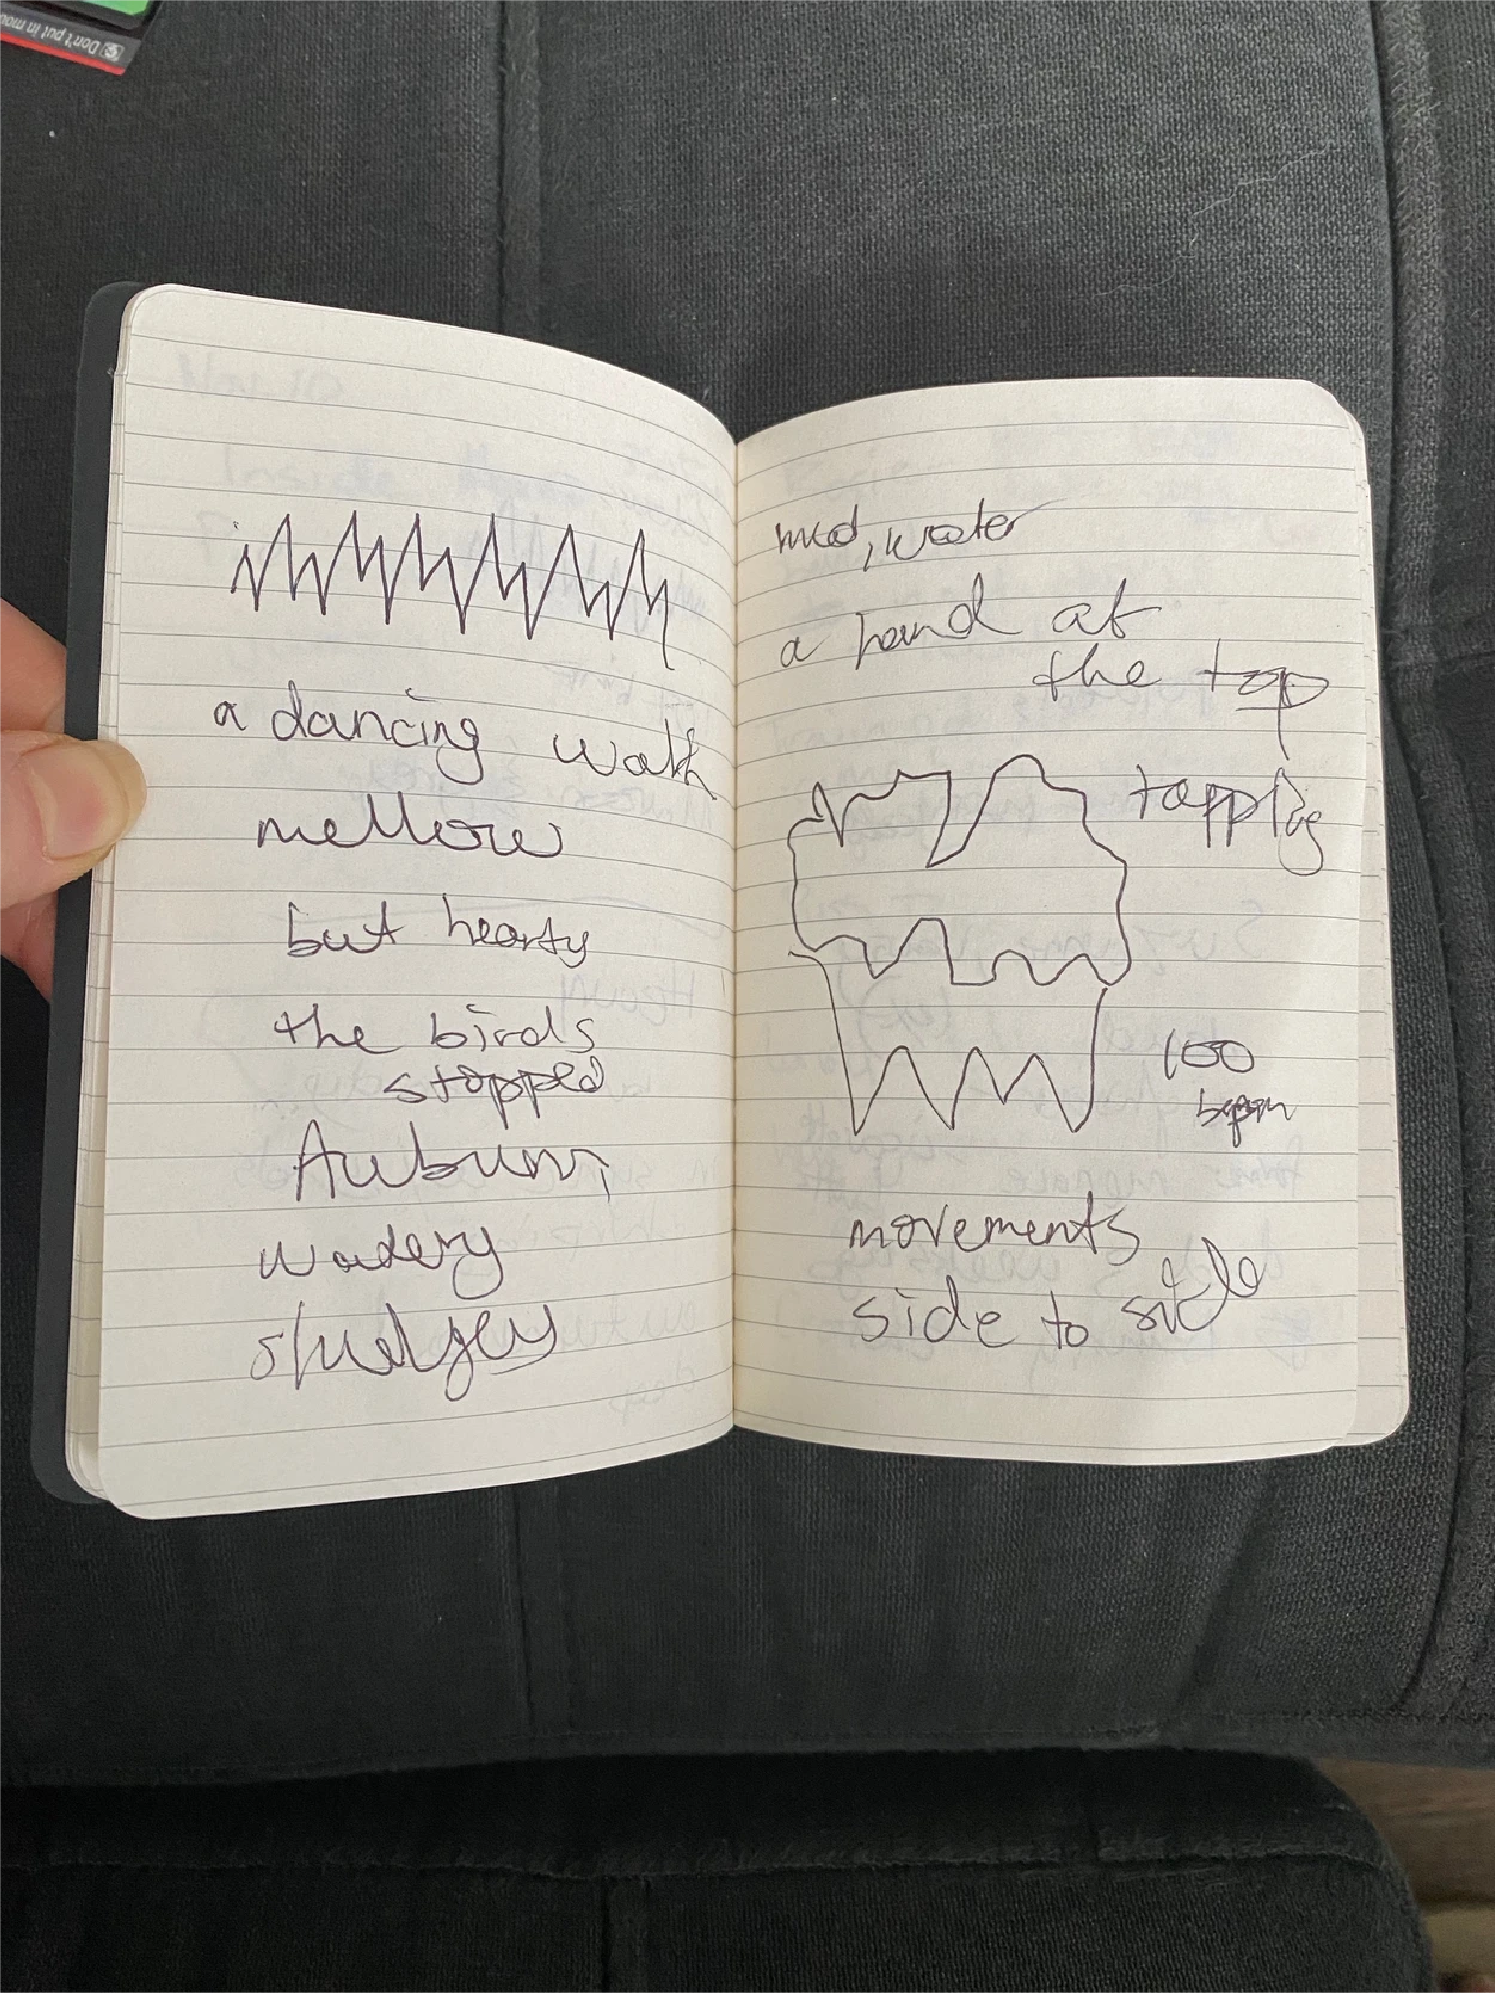 Don't put in mou
a dancing walk
mellow
but hearty
the birds
stopped
Auburn
watery
sludgey
mud, water
a hand at
the top
tapping
100
bpm
movements
side to side